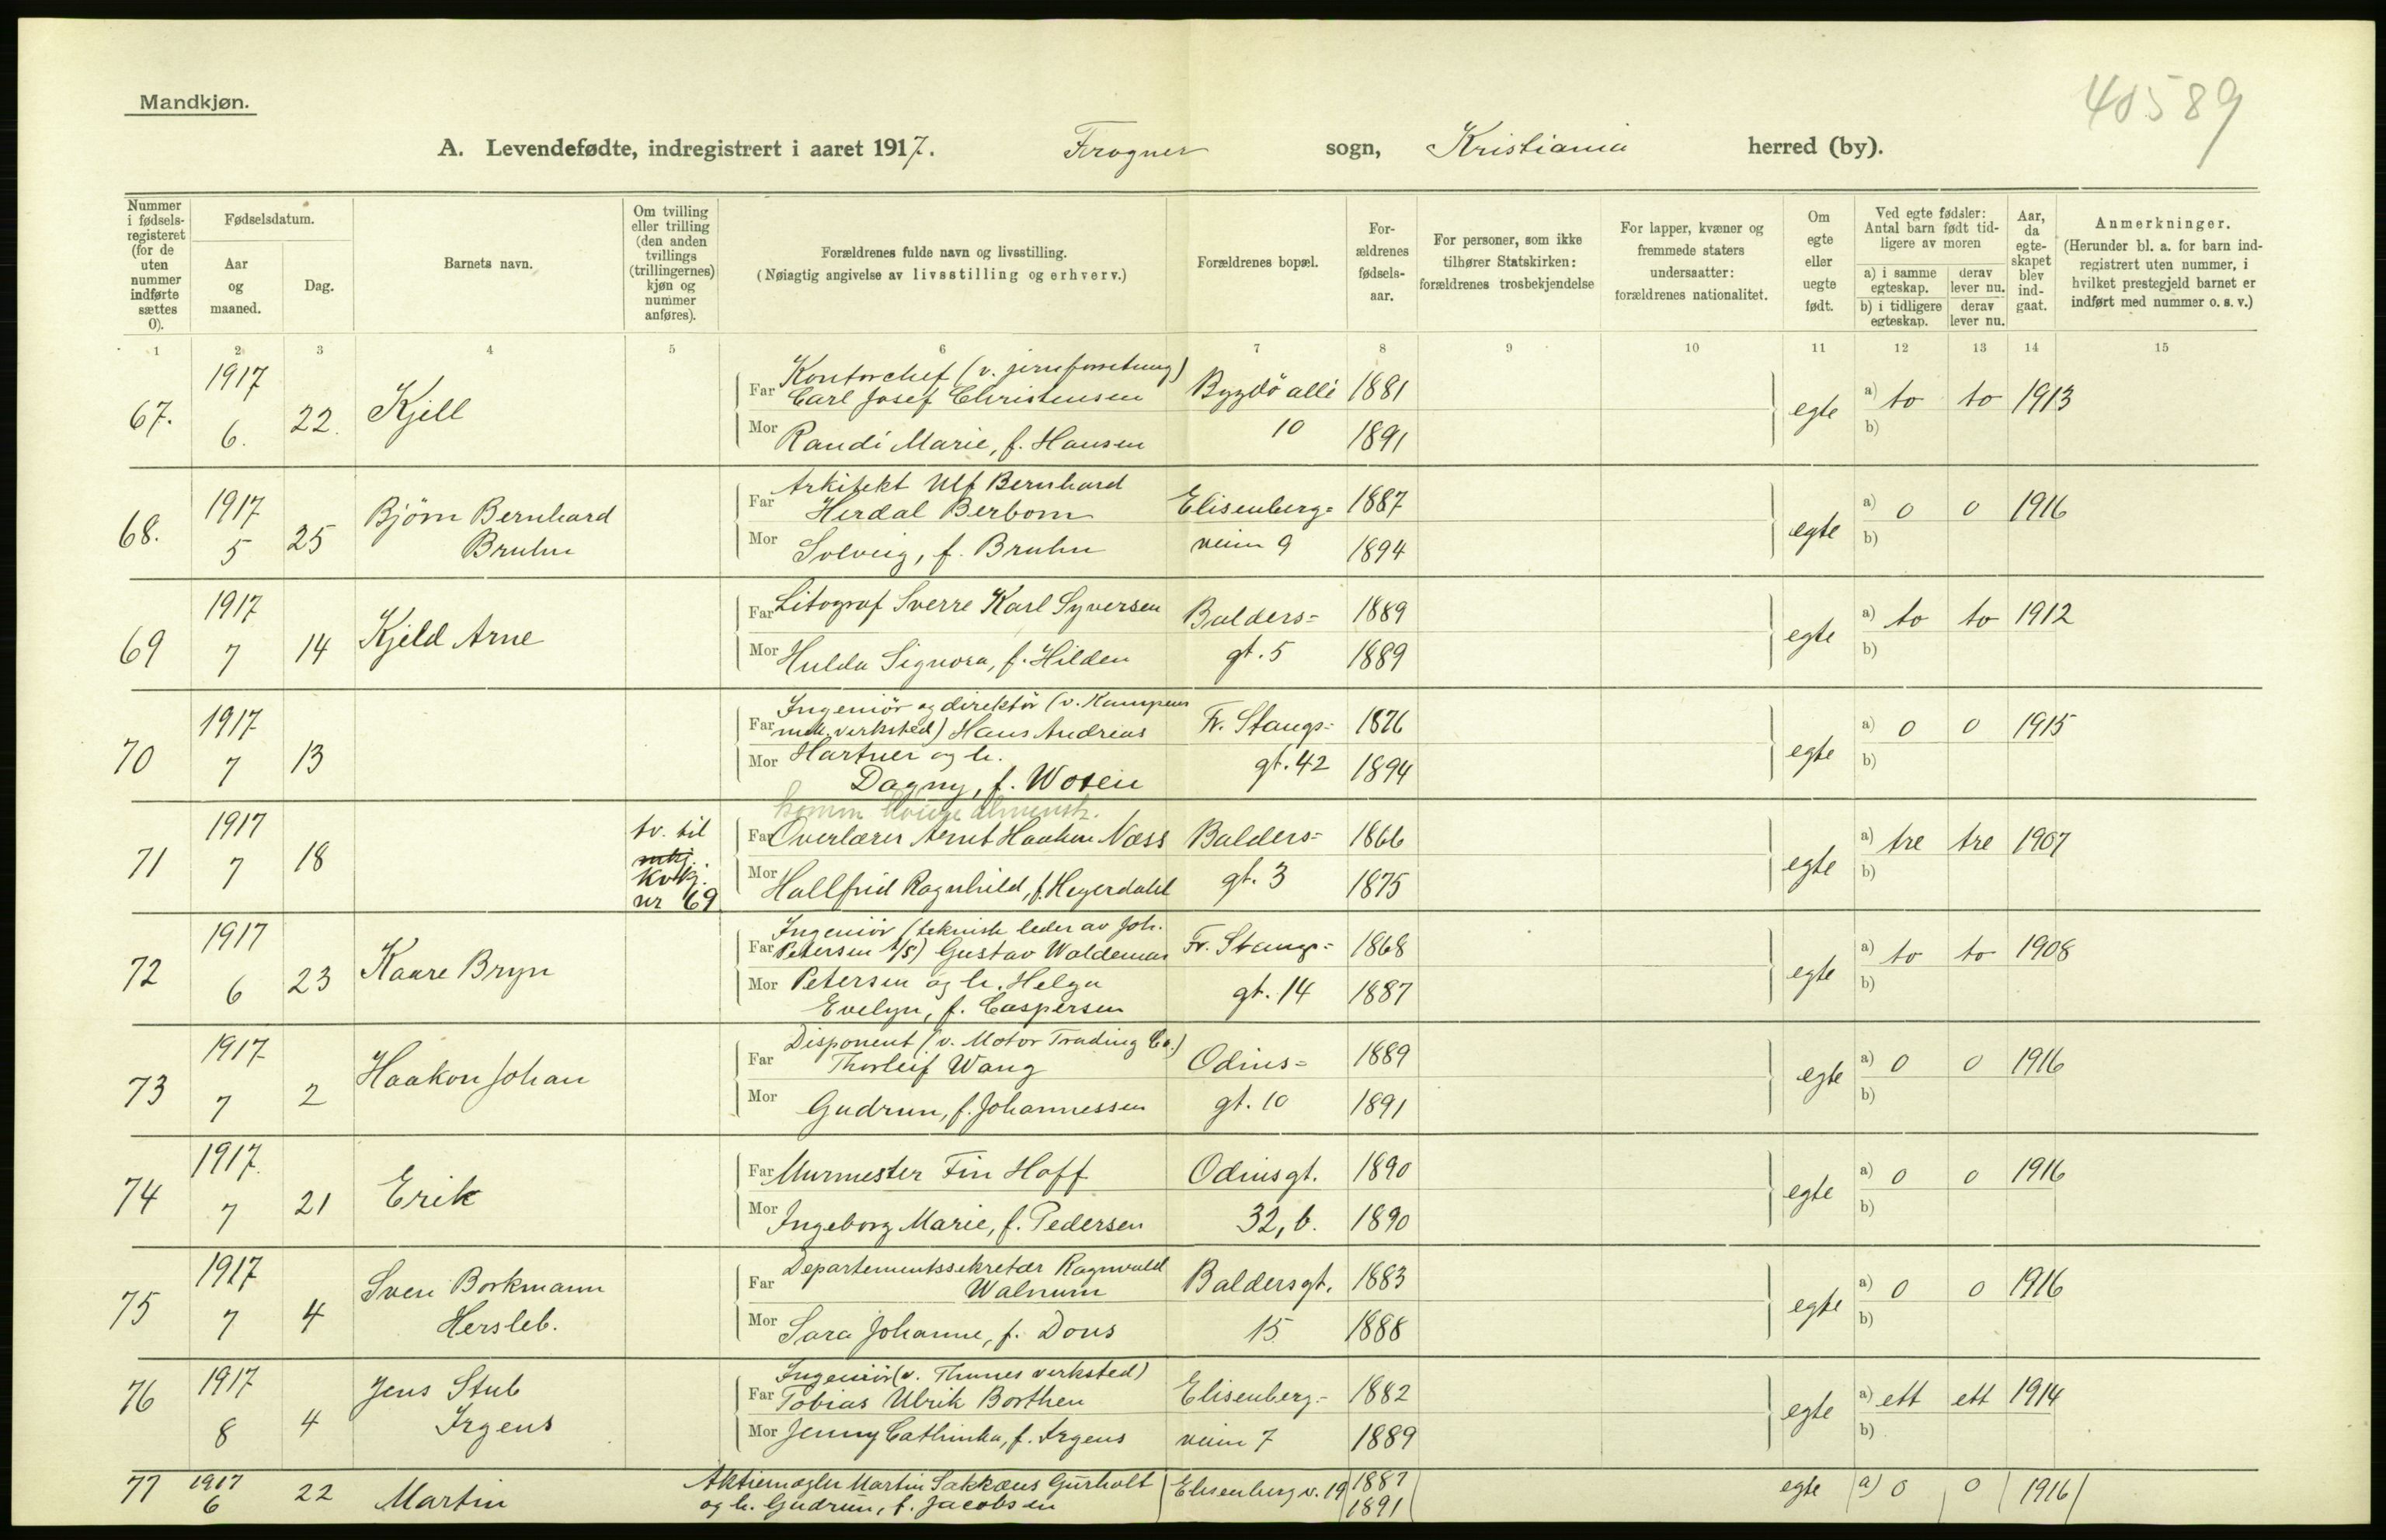 Mandkjøn.
40589
A. Levendefødte, indregistrert i aaret 1917. Frogner sogn, Kristiania herred (by).
Nummer i fødsels-registeret (for de uten nummer indførte sættes 0).
Fødselsdatum.
Aar og maaned.
Dag.
Barnets navn.
Om tvilling eller trilling (den anden tvillings (trillingernes) kjøn og nummer anføres).
Forældrenes fulde navn og livsstilling.
(Nøiagtig angivelse av livsstilling og erhverv.)
Forældrenes bopæl.
For-ældrenes fødsels-aar.
For personer, som ikke tilhører Statskirken: forældrenes trosbekjendelse
For lapper, kvæner og fremmede staters undersaatter: forældrenes nationalitet.
Om egte eller uegte født.
Ved egte fødsler: Antal barn født tid-ligere av moren
a) i samme egteskap.
derav lever nu.
b) i tidligere egteskap.
derav lever nu.
Aar, da egte-skapet blev ind-gaat.
Anmerkninger.
(Herunder bl. a. for barn ind-registrert uten nummer, i hvilket prestegjeld barnet er indført med nummer o. s. v.)
1 2 3 4 5 6 7 8 9 10 11 12 13 14 15
67. 1917 6. 22. Kjell
Far Kontorchef (v. jernforretning)
Carl Josef Christensen Bygdö allé 1881
Mor Randi Marie, f. Hansen 10 1891
egte a) to to 1913
b)
68. 1917 5 25 Bjørn Bernhard
Bruhn
Far Arkitekt Ulf Bernhard
Herdal Berbom Elisenberg= 1887
Mor Solveig, f. Bruhn veien 9 1894
egte a) 0 0 1916
b)
69 1917 7 14 Kjeld Arne
Far Litograf Sverre Karl Syversen Balders= 1889
Mor Hulda Signora, f. Hilden gt. 5 1889
egte a) to to 1912
b)
70 1917 7 13
Far Ingeniör og direktör (v. Kampens
mek. verksted) Hans Andreas Fr. Stangs= 1876
Mor Hartner og h.
Dagny, f. Woxen gt. 42 1894
egte a) 0 0 1915
b)
71 1917 7 18 tv. til
kvkj.
nr 69
Far Overlærer Arnt Haakon Næss Balders= 1866
Mor Hallfrid Ragnhild, f. Heyerdahl gt. 3 1875
egte a) tre tre 1907
b)
72 1917 6 23 Kaare Bryn
Ingeniör (teknisk leder av Joh.
Far Petersen A/S) Gustav Waldemar Fr. Stangs= 1868
Mor Petersen og h. Helga
Evelyn, f. Caspersen gt. 14 1887
egte a) to to 1908
b)
73 1917 7 2 Haakon Johan
Far Disponent (v. Motor Trading Co.)
Thorleif Wang Odins= 1889
Mor Gudrun, f. Johannessen gt. 10 1891
egte a) 0 0 1916
b)
74 1917. 7 21 Erik
Far Murmester Fin Hoff Odinsgt. 1890
Mor Ingeborg Marie, f. Pedersen 32, b. 1890
egte a) 0 0 1916
b)
75 1917 7 4 Sven Borkmann
Hersleb.
Far Departementssekretær Ragnvald
Walnum Baldersgt. 1883
Mor Sara Johanne, f. Dons 15 1888
egte a) 0 0 1916
b)
76 1917 8 4 Jens Stub
Irgens
Ingeniör (v. Thunes verksted)
Far Tobias Ulrik Borthen Elisenberg= 1882
Mor Jenny Cathinka, f. Irgens veien 7 1889
egte a) ett ett 1914
b)
77 1917 6 22 Martin
Aktiemægler Martin Sakkæus Gurholt Elisenberg v. 19 1887
og h. Gudrun, f. Jacobsen 1891
egte a) 0 0 1916